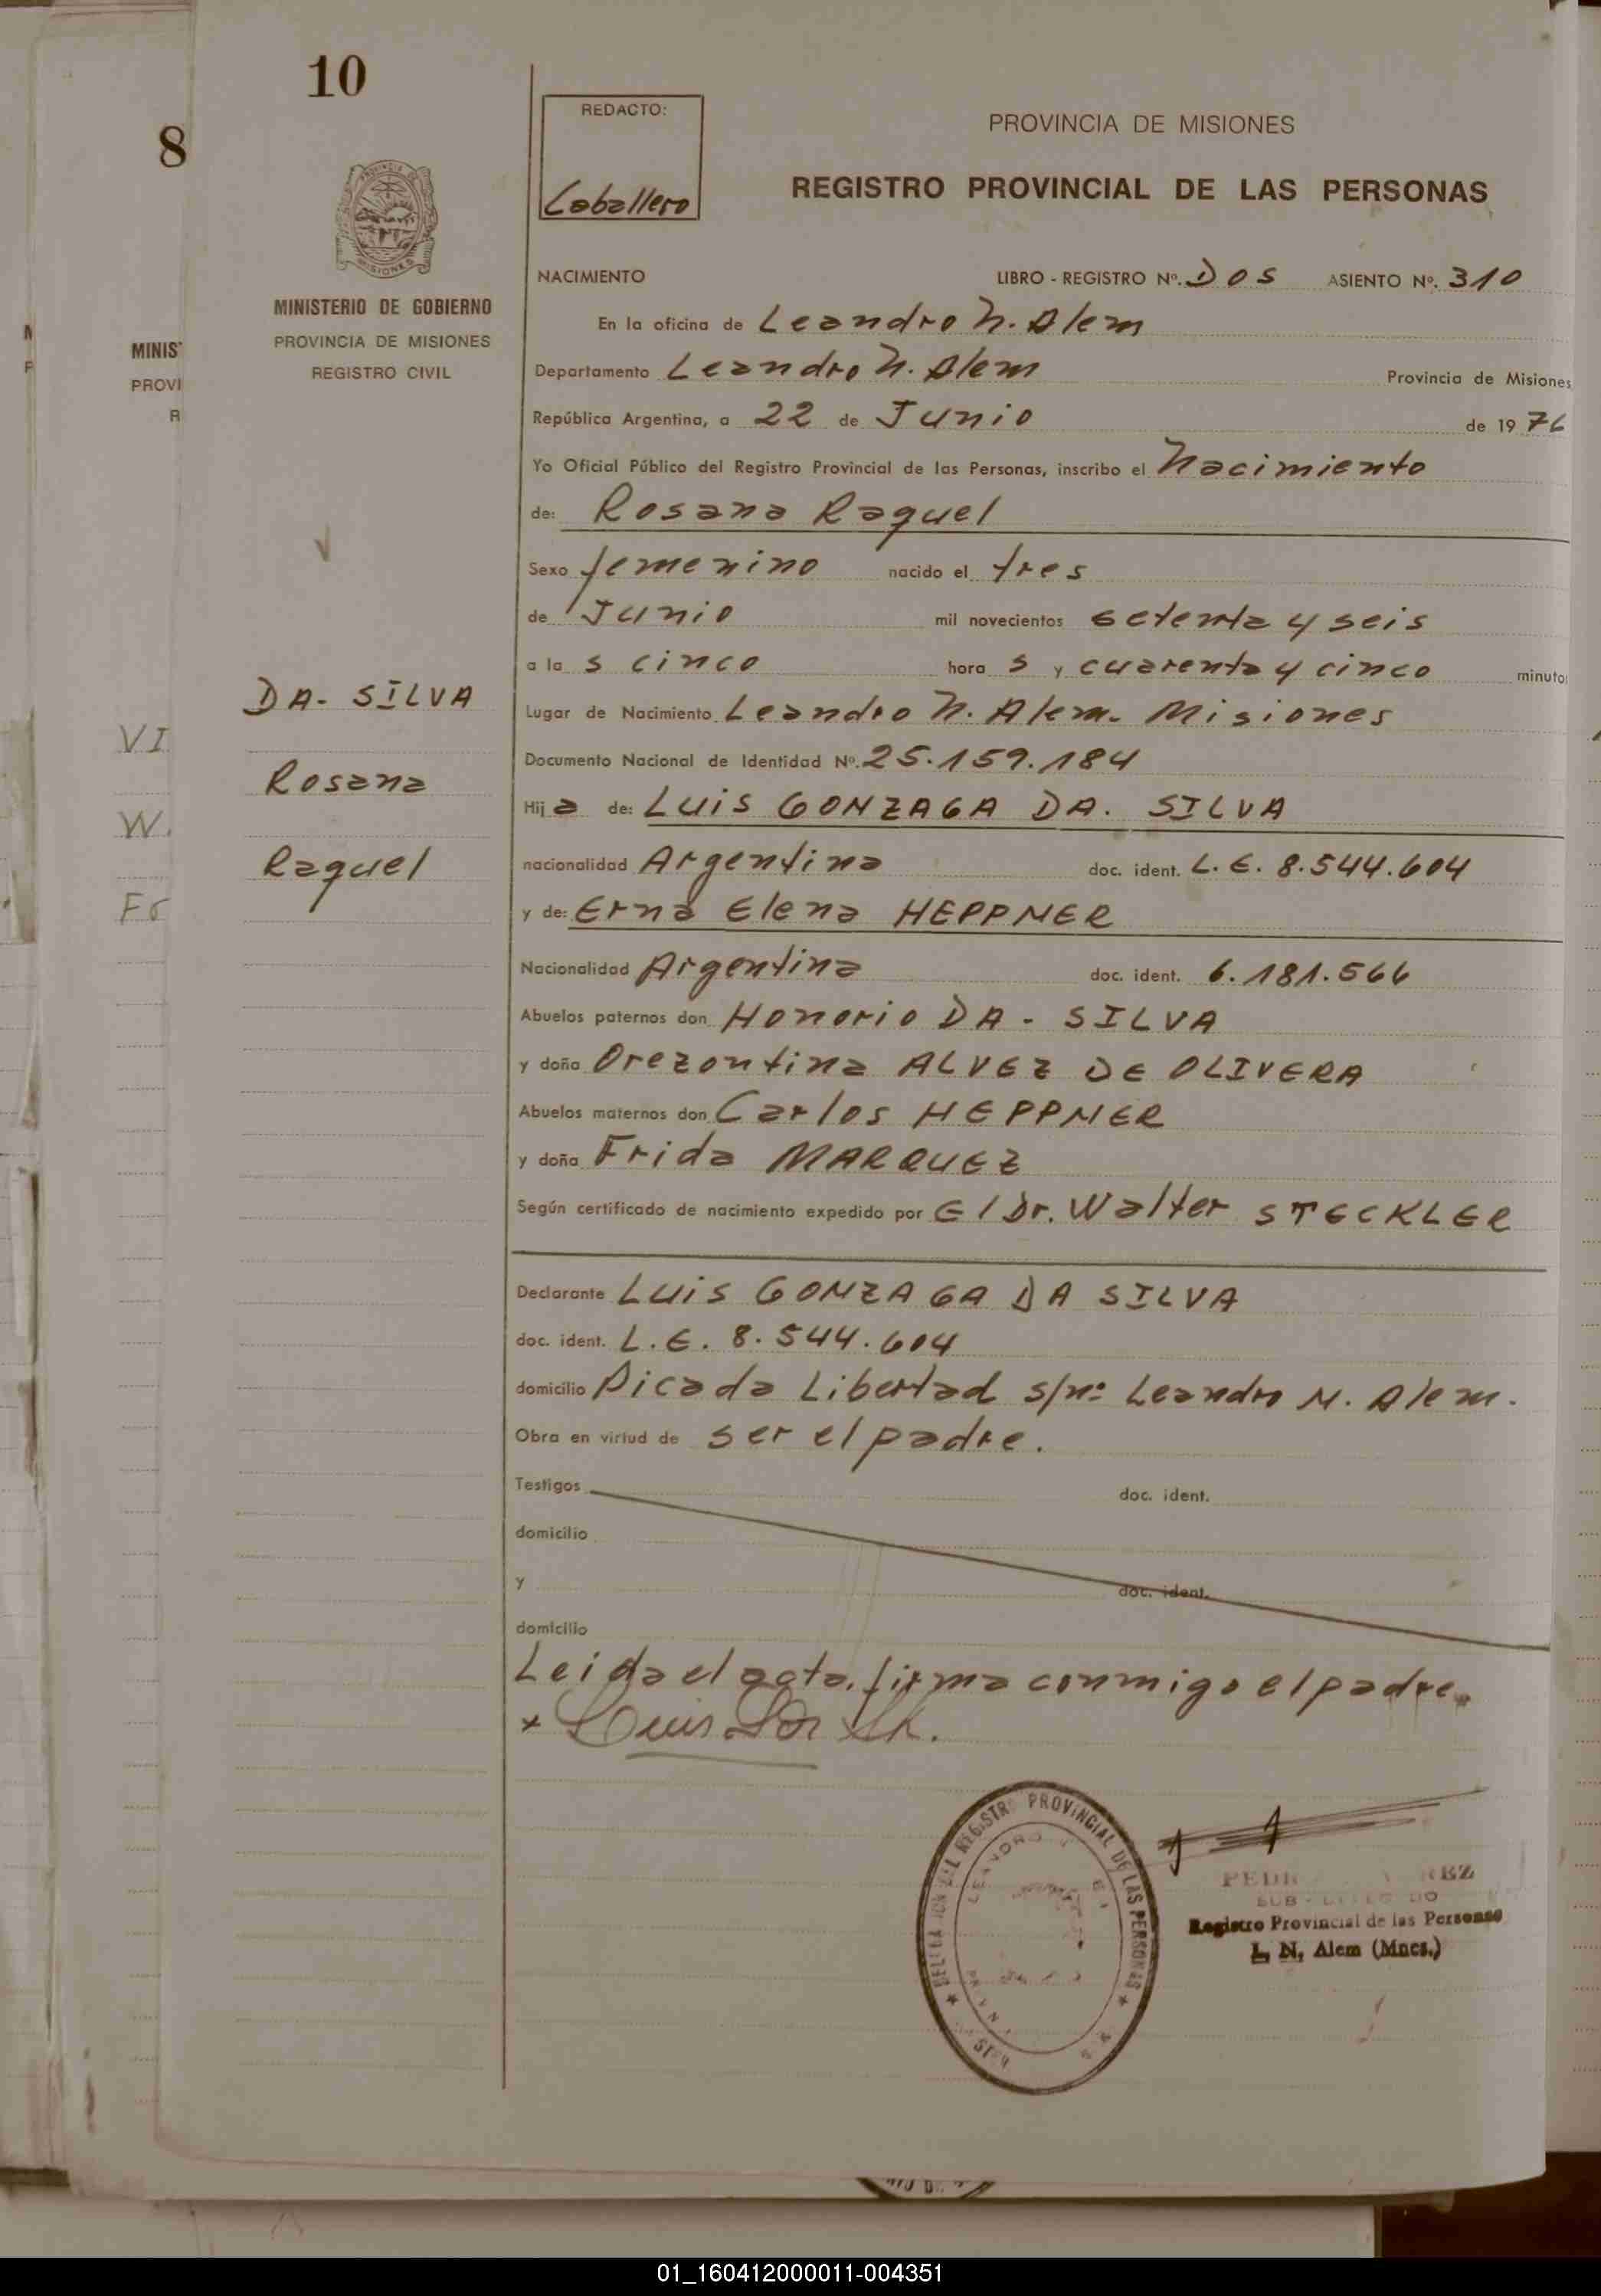 10
8
REDACTO:
Caballero
PROVINCIA DE MISIONES
REGISTRO PROVINCIAL DE LAS PERSONAS
PROVINCIA DE
MISIONES
MINISTERIO DE GOBIERNO
PROVINCIA DE MISIONES
REGISTRO CIVIL
MINIS
PROVI
R
NACIMIENTO LIBRO - REGISTRO Nº. DOS ASIENTO Nº. 310
En la oficina de Leandro N. Alem
Departamento Leandro N. Alem Provincia de Misiones
República Argentina, a 22 de Junio de 1976
Yo Oficial Público del Registro Provincial de las Personas, inscribo el Nacimiento
de: Rosana Raquel
Sexo femenino nacido el tres
de Junio mil novecientos setenta y seis
a la s cinco hora s y cuarenta y cinco minuto
Lugar de Nacimiento Leandro N. Alem. Misiones
Documento Nacional de Identidad Nº. 25.159.184
Hija de: LUIS GONZAGA DA. SILVA
nacionalidad Argentina doc. ident. L.E. 8.544.604
y de: Erna Elena HEPPNER
Nacionalidad Argentina doc. ident. 6.181.566
Abuelos paternos don Honorio DA - SILVA
y doña Orezontina ALVEZ DE OLIVERA
Abuelos maternos don Carlos HEPPNER
y doña Frida MARQUEZ
Según certificado de nacimiento expedido por El Dr. Walter STECKLER
DA - SILVA
Rosana
Raquel
VI
W.
Declarante LUIS GONZAGA DA SILVA
doc. ident. L.E. 8.544.604
domicilio Picada Libertad s/nº Leandro N. Alem.
Obra en virtud de ser el padre.
Testigos doc. ident.
domicilio
y doc. ident.
domicilio
Leida el acta, firma conmigo el padre.
x Luis Da
REGISTRO PROVINCIAL DE LAS PERSONAS
LEANDRO
Registro Provincial de las Personas
L. N. Alem (Mnes.)
01_160412000011-004351